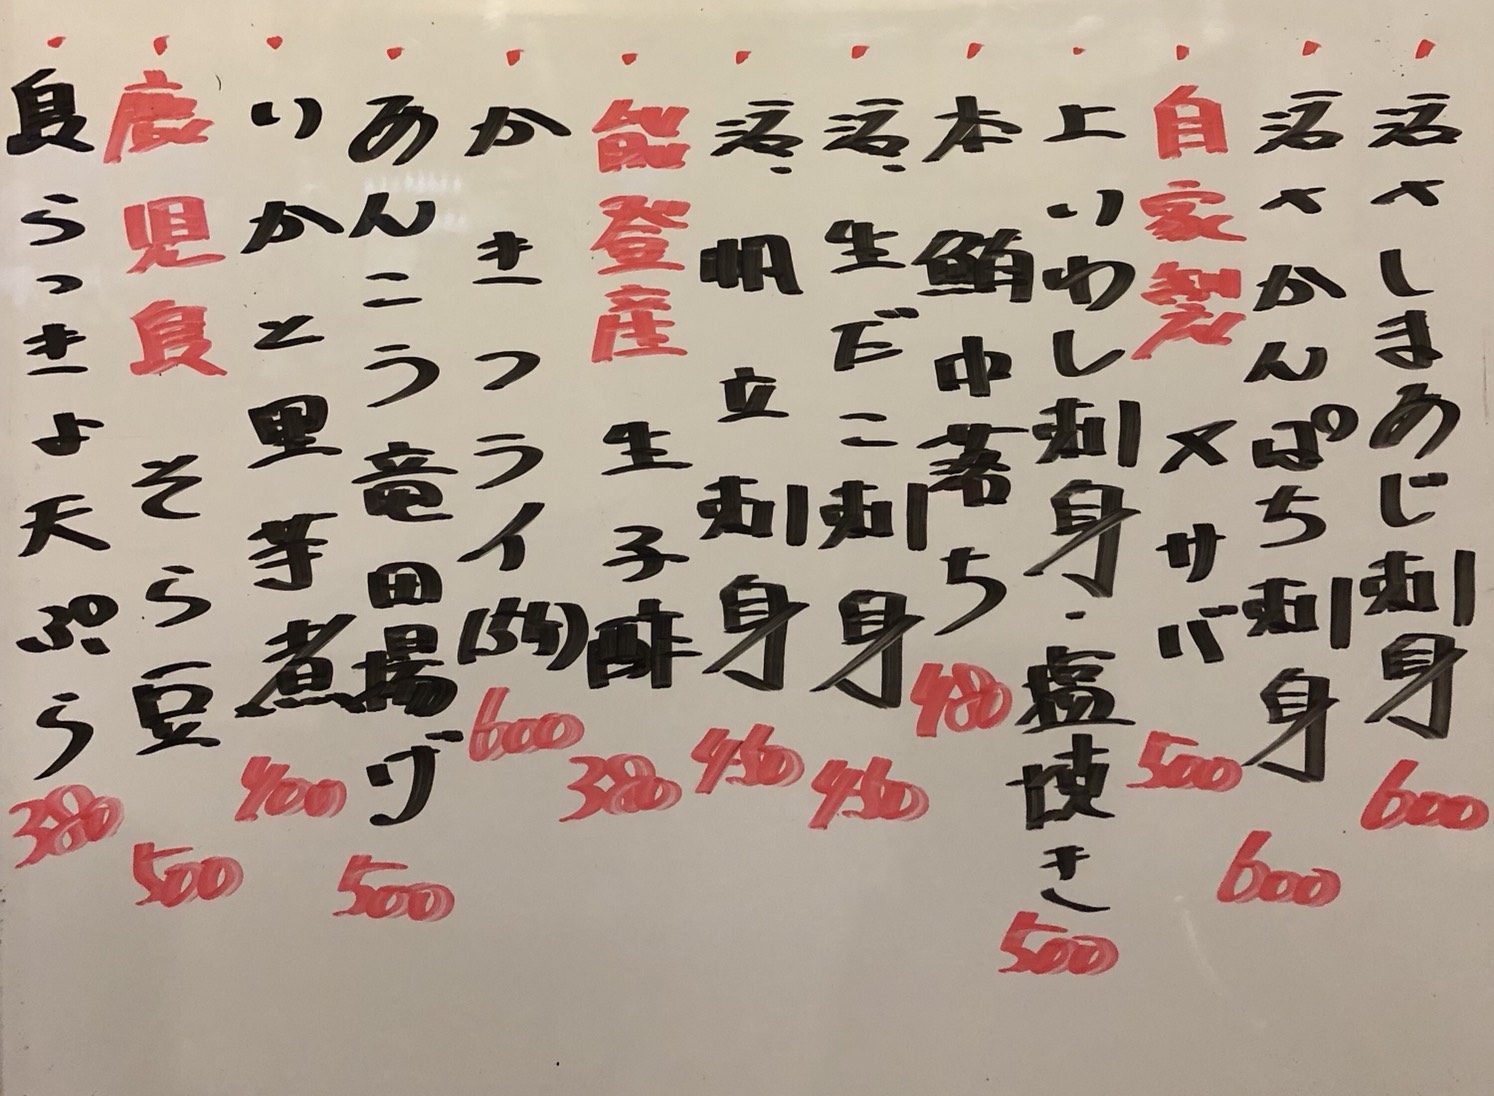 活〆しまあじ刺身 600
活〆かんぱち刺身 600
自家製 〆サバ 500
上いわし刺身・塩焼き 500
本鮪中落ち 480
活生だこ刺身 450
活帆立刺身 450
能登産 生子酢 380
かきフライ(5ケ) 600
あんこう竜田揚げ 500
いかと里芋煮 400
鹿児島 そら豆 500
島らっきょ天ぷら 380